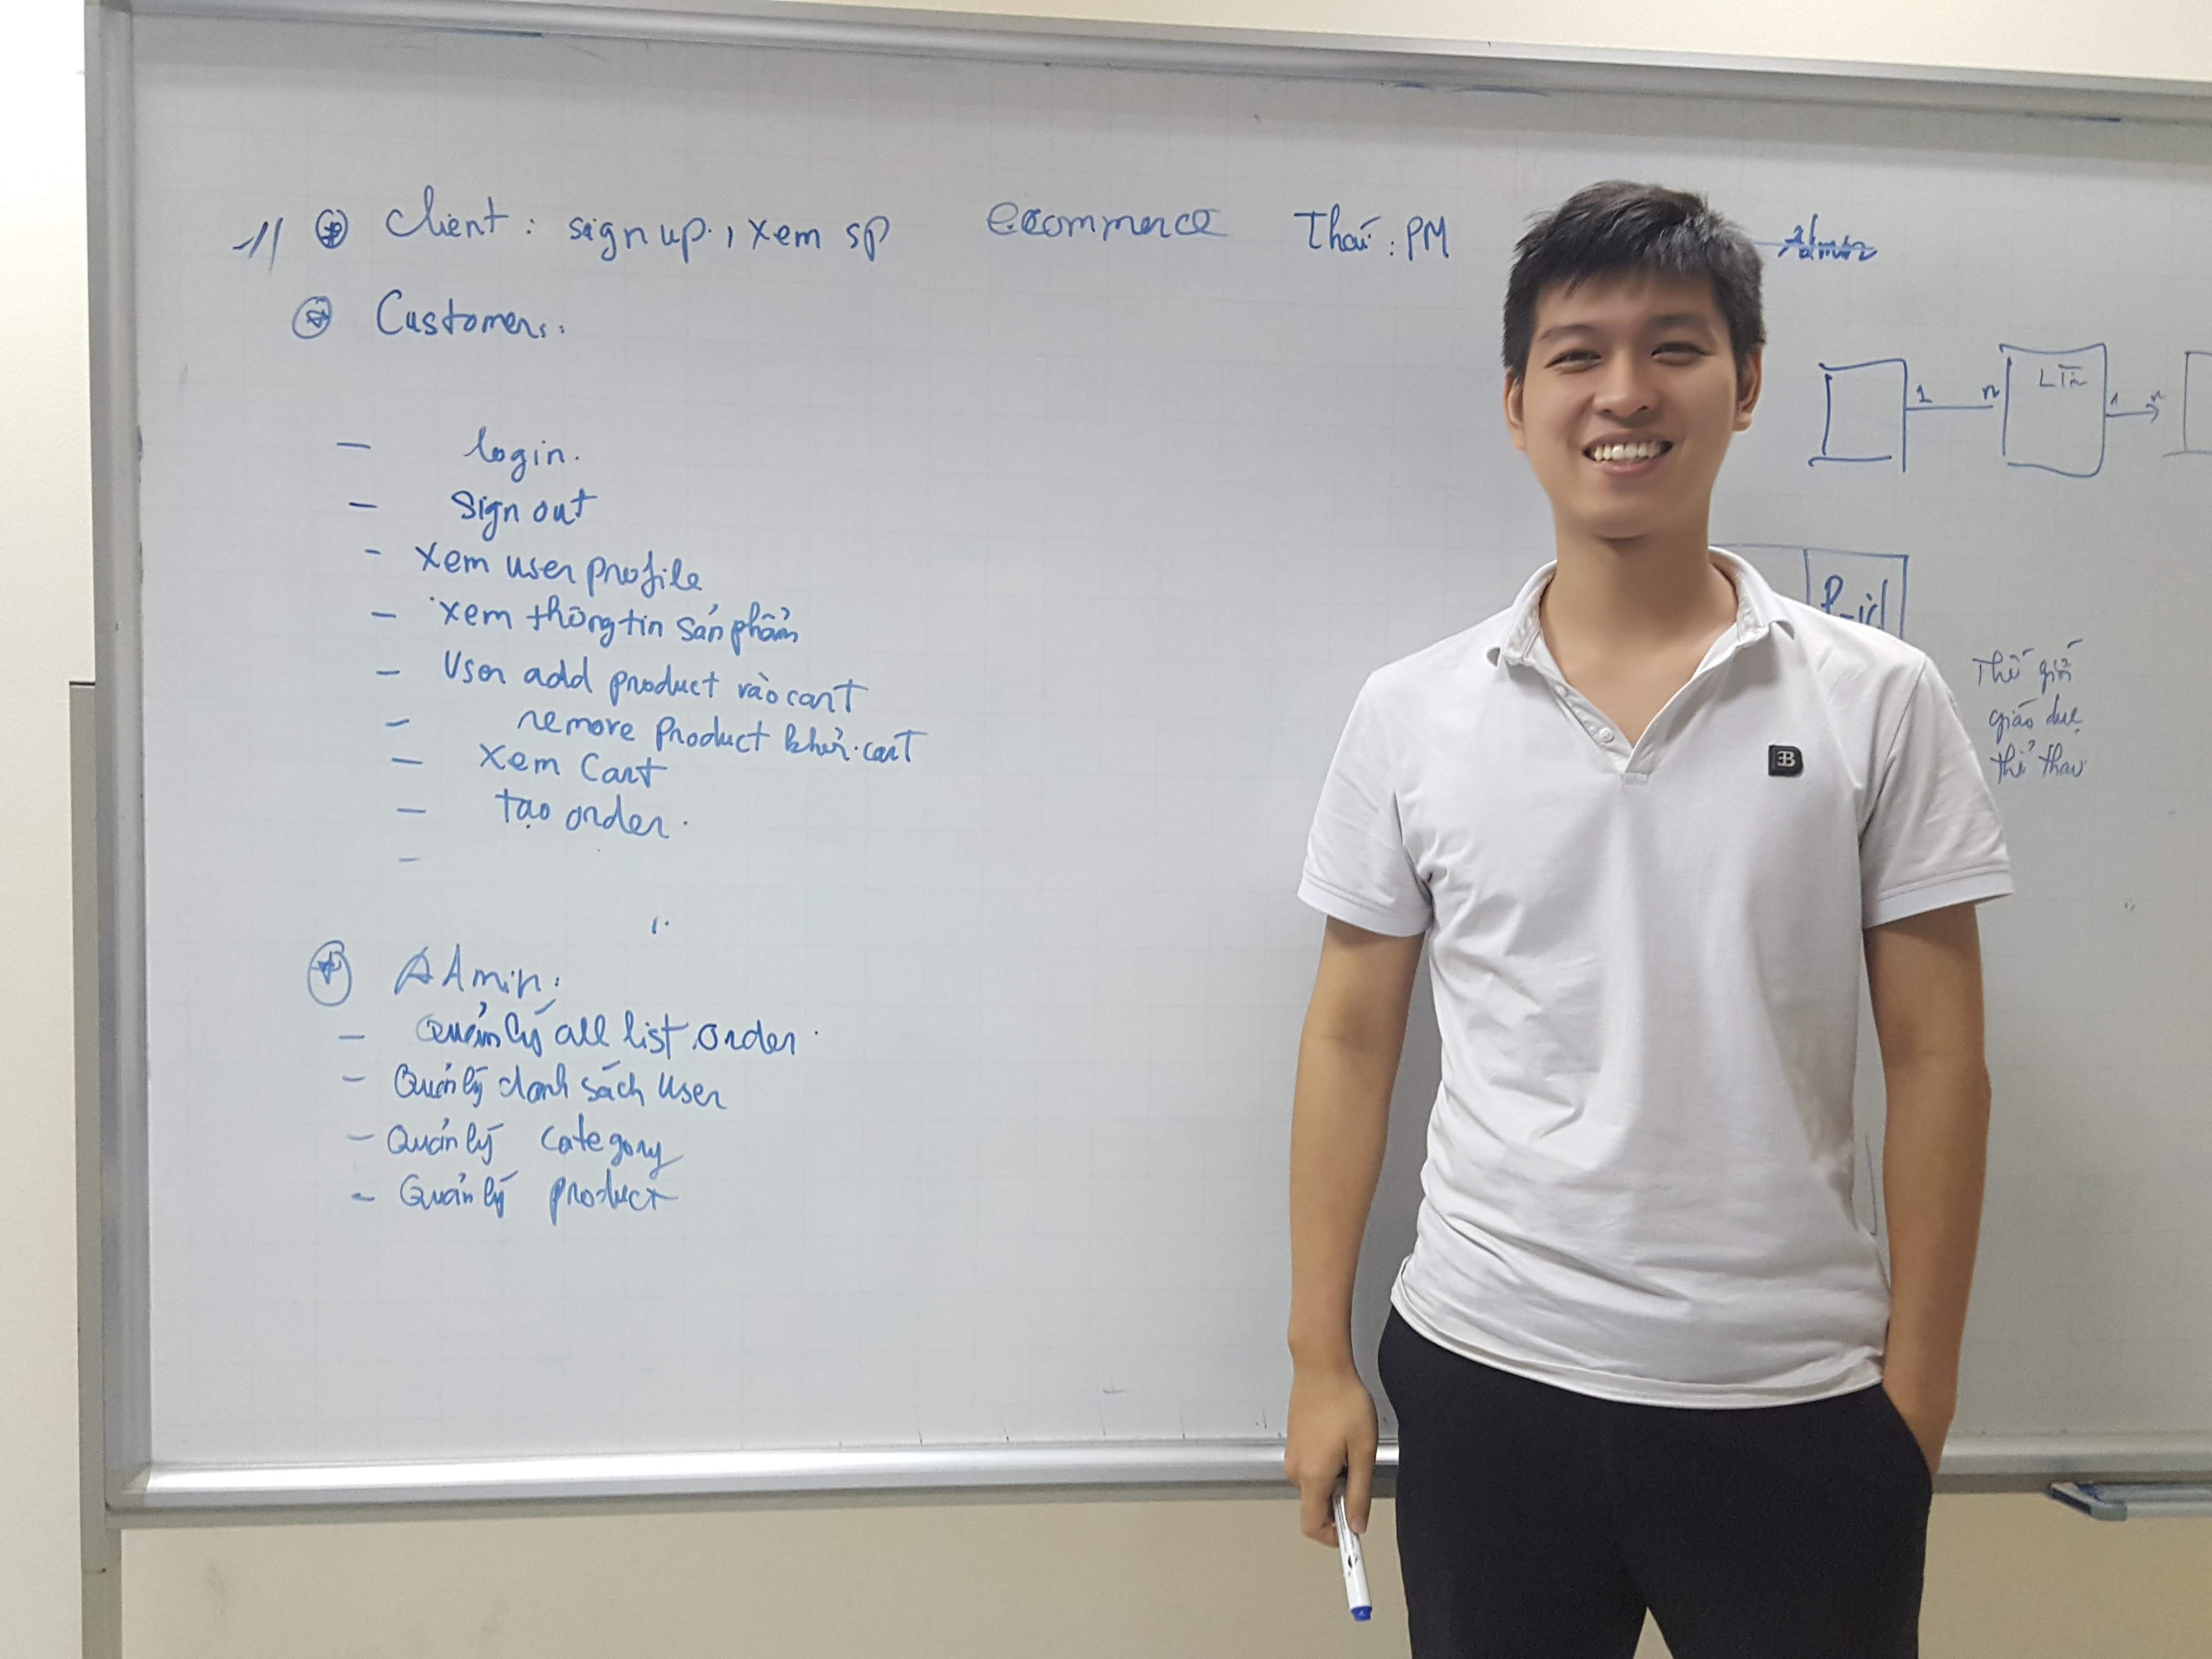 1/ Client: sign up, xem sp
ecommerce
Thái: PM
Customers:
- login.
- Sign out
- xem user profile
- xem thông tin sản phẩm
- User add product vào cart
- remove product khỏi cart
- xem Cart
- tạo order.
-
Admin:
- Quản lý all list order.
- Quản lý danh sách user
- Quản lý category
- Quản lý product
1 n
1 n
P-id
Thế giới
giáo dục
thể thao
B